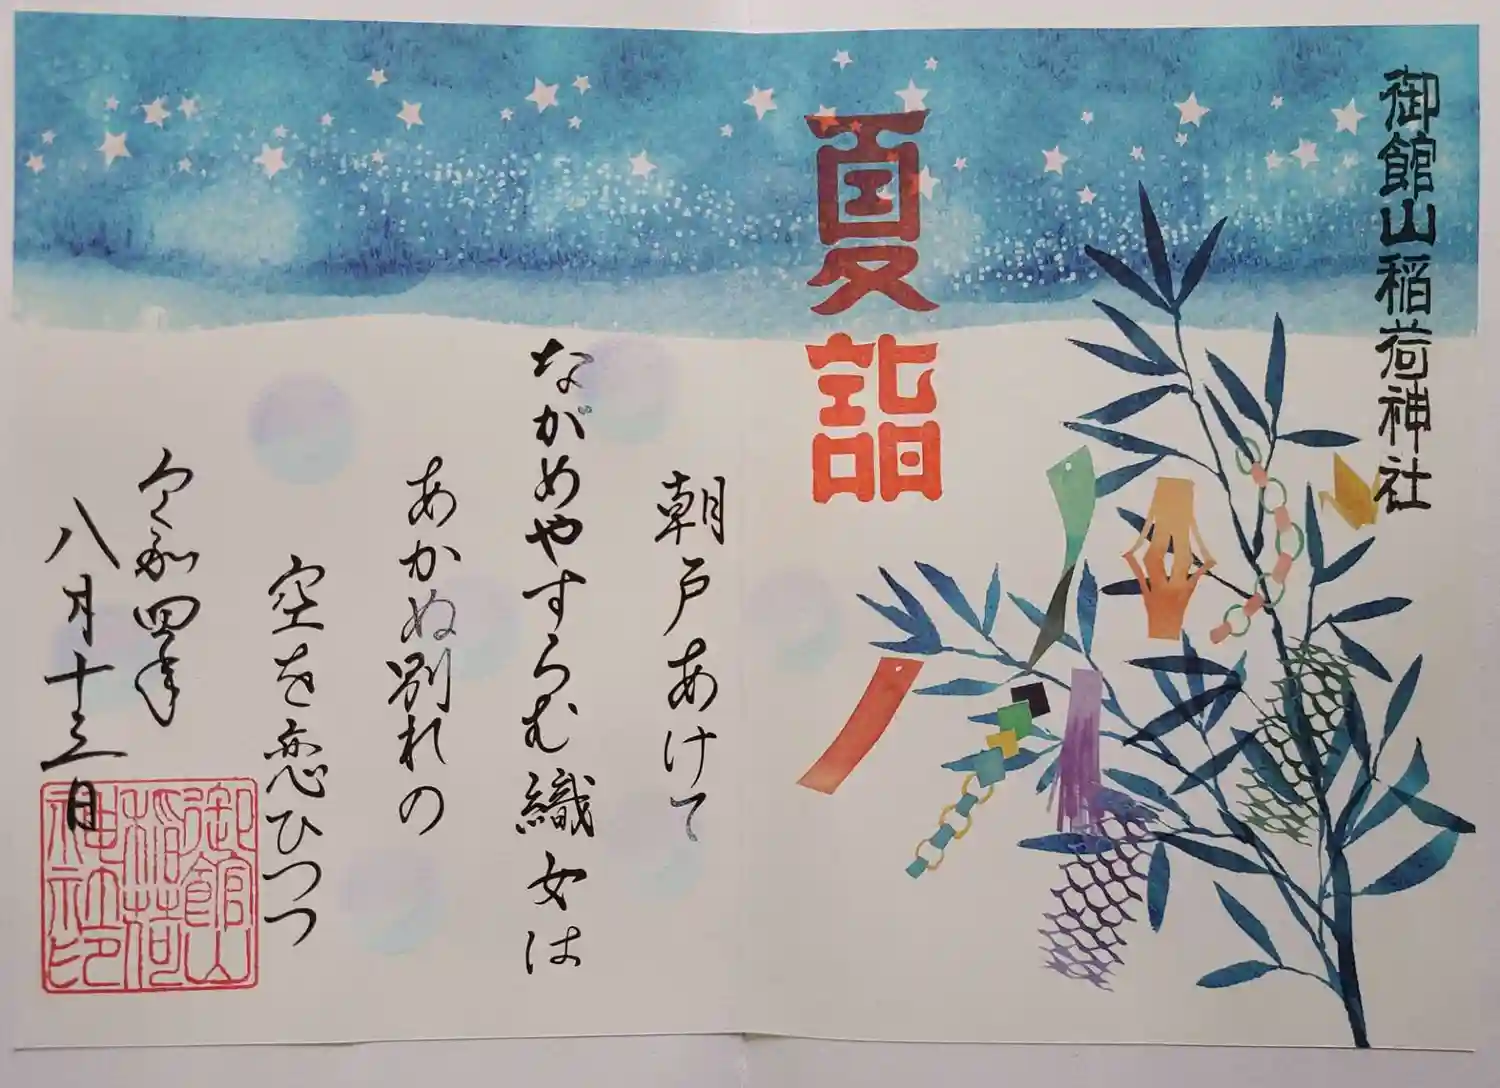 御館山稲荷神社
夏詣
朝戸あけて
ながめやすらむ織女は
あかぬ別れの
空を恋ひつつ
令和四年
八月十三日
御館山
稲荷
神社印